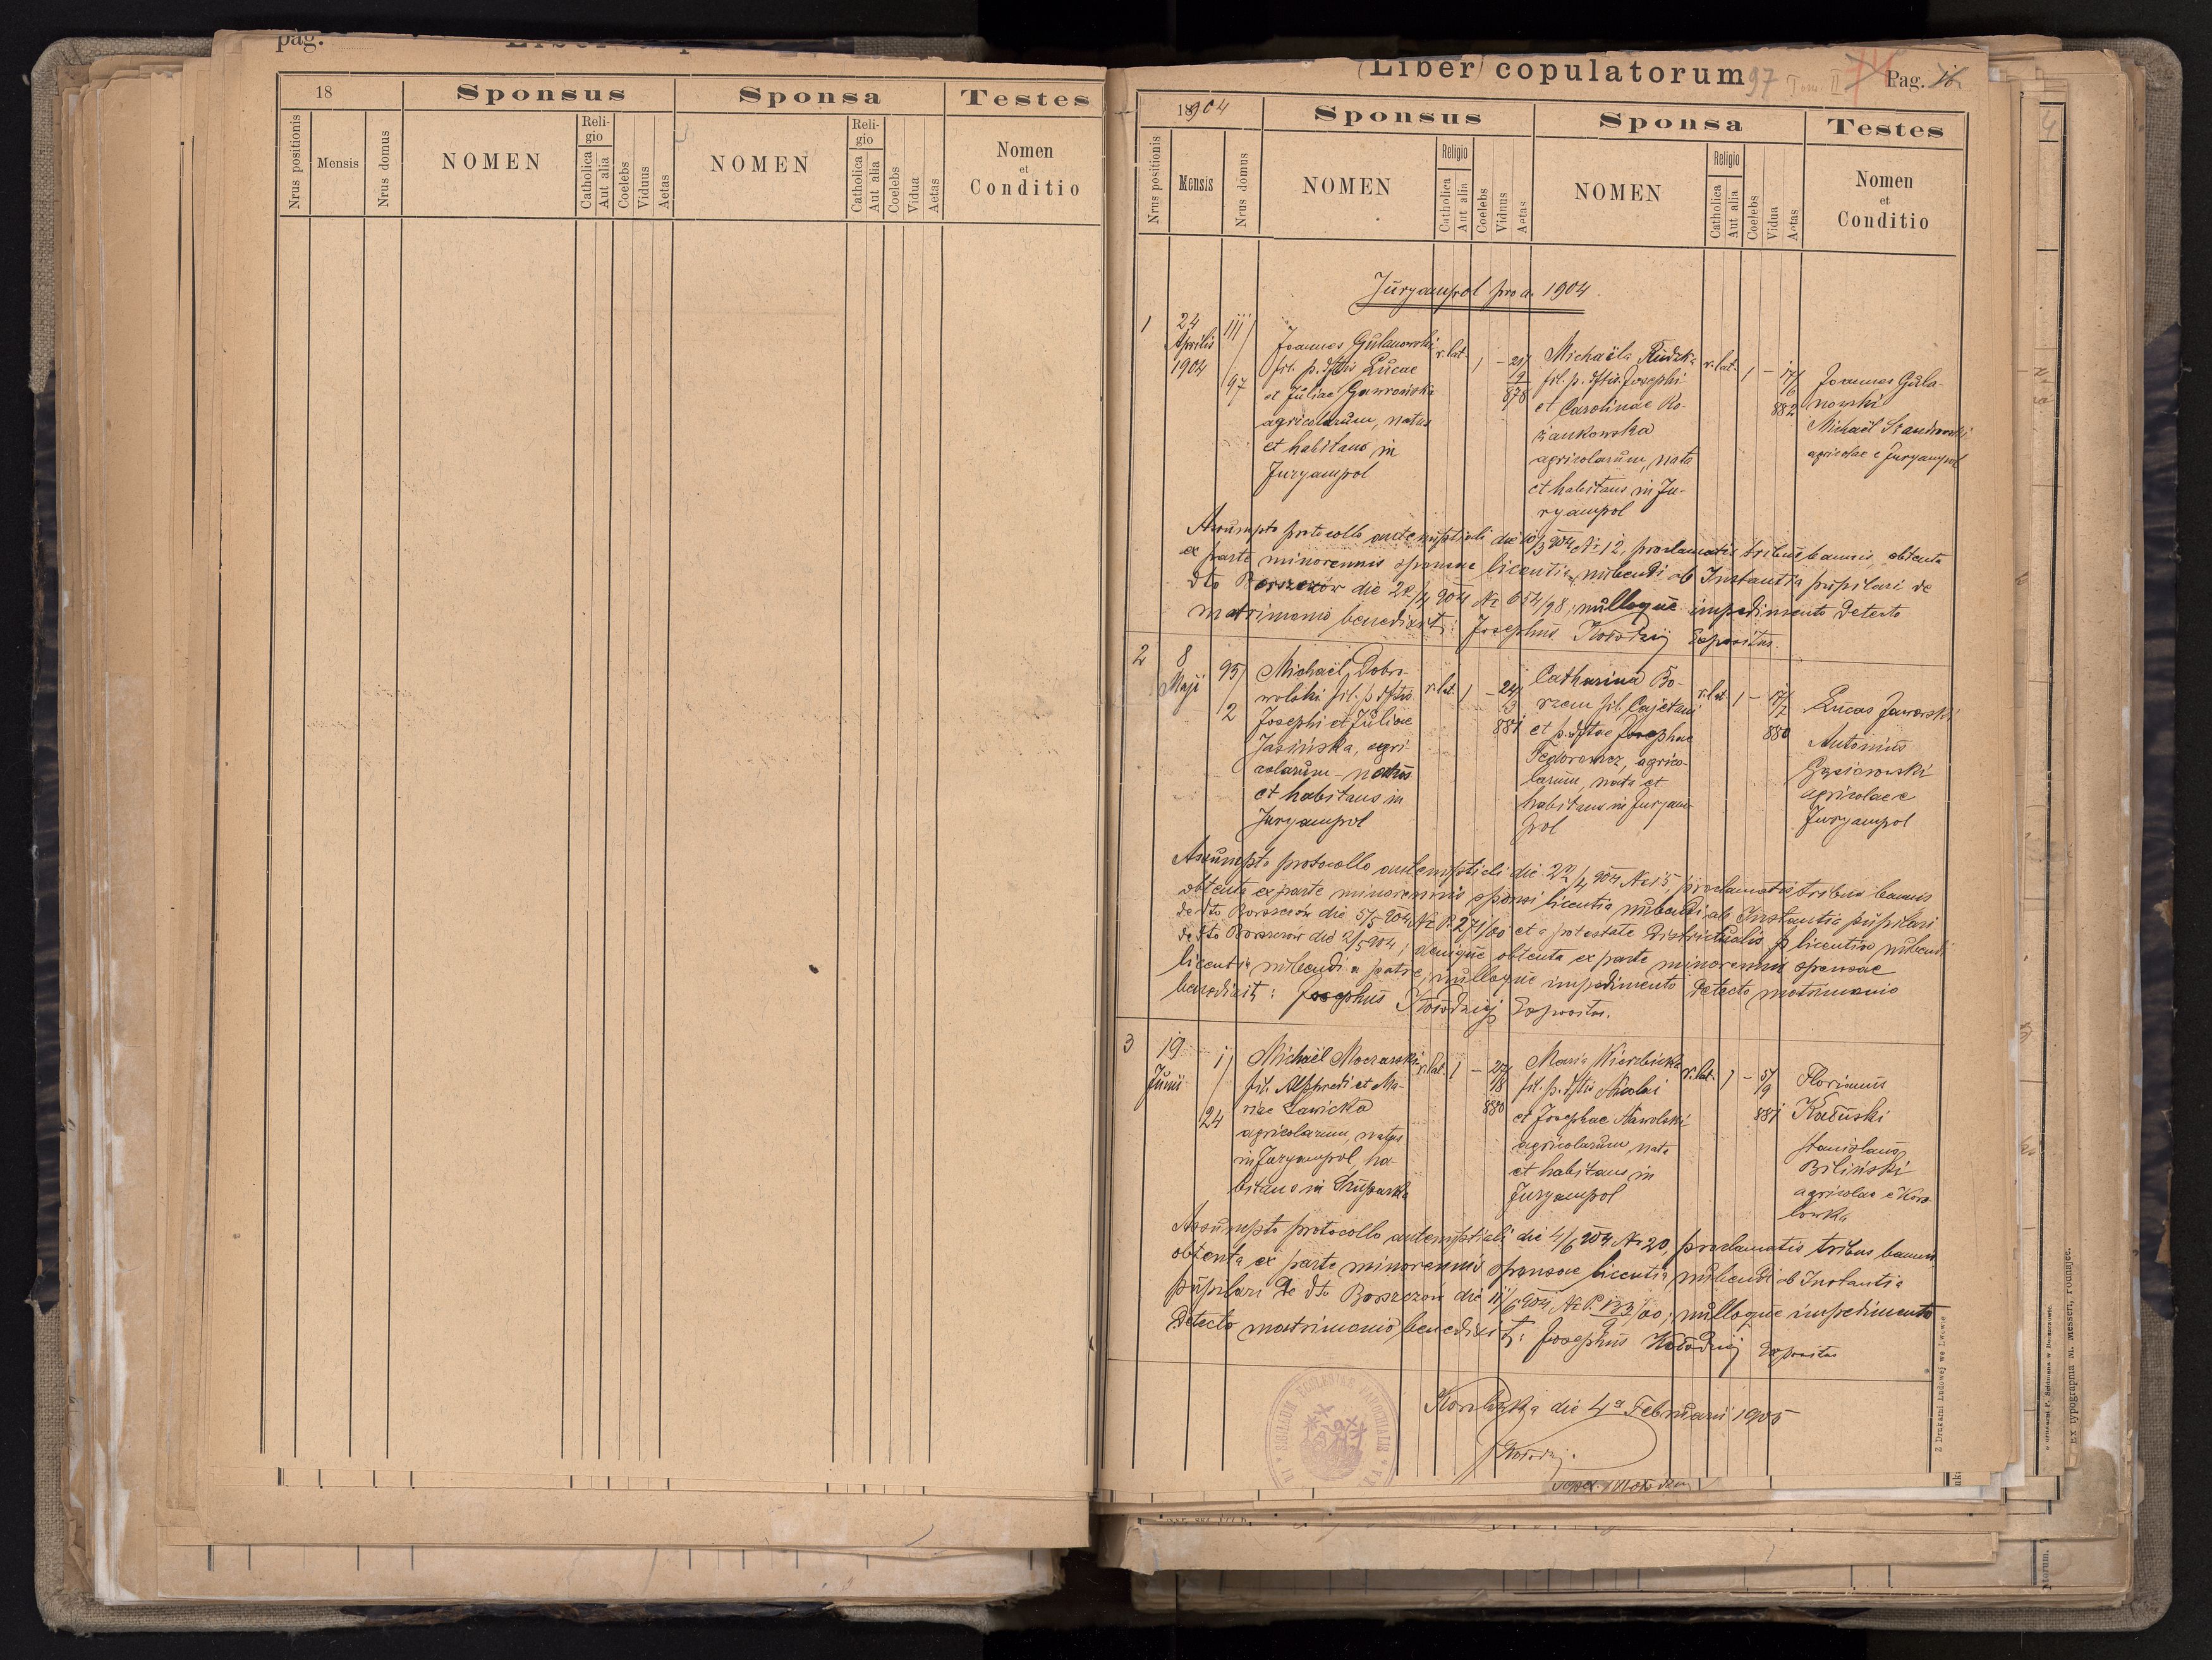 pag.
18
Sponsus
Sponsa
Testes
Nrus positionis
Mensis
Nrus domus
NOMEN
Religio
Catholica
Aut alia
Coelebs
Viduus
Aetas
NOMEN
Religio
Catholica
Aut alia
Coelebs
Vidua
Aetas
Nomen
et
Conditio
(Liber) copulatorum
97 Tom. II
Pag.
1904
Sponsus
Sponsa
Testes
Nrus positionis
Mensis
Nrus domus
NOMEN
Religio
Catholica
Aut alia
Coelebs
Viduus
Aetas
NOMEN
Religio
Catholica
Aut alia
Coelebs
Vidua
Aetas
Nomen
et
Conditio
Juryampol pro a. 1904
1
24
Aprilis
1904
111/
97
Joannes Gulanowski
fil. p. dftis Lucae
et Juliae Gawrońska
agricolarum, natus
et habitans in
Juryampol
r. lat. 1 –
21/
9
878
Michaëla Rudzka
fil. p. dftis. Josephi
et Carolinae Ro-
żankowska
agricolarum, nata
et habitans in Ju-
ryampol
r. lat. 1 –
17/
882
Joannes Gula-
nowski
Michaël
agricolae e Juryampol
Assumpto protocollo antenuptiali die 904 Nr 12, proclamatis tribus bannis, obtenta
ex parte minorennis sponsae licentia nubendi ab Instantia pupilari de
dto Borszczów die 22/4 904 Nr 654/98; nulloque impedimento detecto
matrimonio benedixit: Josephus Kołodziej Expositus.
2
8
Maji
95/
2
Michaël Dobro-
wolski fil. p. dftis
Josephi et Juliae
Jasińska, agri-
colarum – natus
et habitans in
Juryampol
r. lat. 1 –
24/
9
881
Catharina Bo-
rzem fil. Cajetani
et p. dftae Josephae
Fedorowicz, agrico-
larum, nata et
habitans in Juryam-
pol
r. lat. 1 –
17/
880
Lucas Jaworski
Antonius
agricolae e
Juryampol
Assumpto protocollo antenuptiali die 22/4 904 Nr 15, proclamatis tribus bannis
obtenta ex parte minorennis sponsi licentia nubendi ab Instantia pupilari
de dto Borszczów die 5/5 904 Nr P. 271/00 et a potestate districtualis p licentiae nubendi
de dto Borszczów die 2/5 904; denique obtenta ex parte minorennis sponsae
licentia nubendi a patre; nulloque impedimento detecto matrimonio
benedixit: Josephus Kołodziej Expositus.
3
19
Junii
1/
24
Michaël Moczarski
fil. Alfredi et Ma-
riae Sawicka
agricolarum, natus
in Juryampol, ha-
bitans in Szuparka
r. lat. 1 –
27/
8
880
Maria Wierzbicka
fil. p. dftis Nicolai
et Josephae Nawolski
agricolarum nata
et habitans in
Juryampol
r. lat. 1 –
5/
9
881
Florianus
Kałuski
Stanislaus
Biliński
agricolae e Koro-
lówka
Assumpto protocollo antenuptiali die 4/6 904 Nr 20, proclamatis tribus bannis
obtenta ex parte minorennis sponsae licentia nubendi ab Instantia
pupilari de dto Borszczów die 11/6 904 Nr P. 133/00; nulloque impedimento
detecto matrimonio benedixit: Josephus Kołodziej Expositus
Korolówka die 4a Februarii 1905
J Kołodziej.
SIGILLUM ECCLESIAE PAROCHIALIS
Z Drukarni Ludowej we Lwowie
Ex typographia M. Messeri, Podhajce.